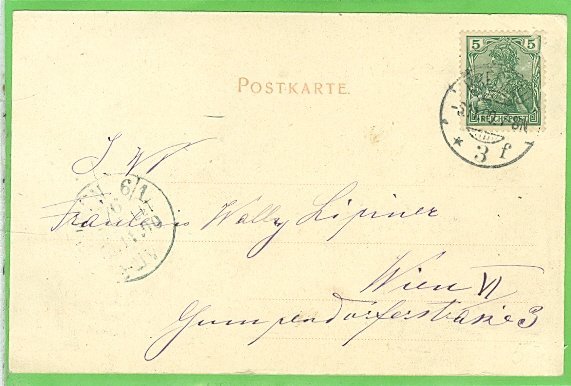 5 5
REICHSPOST
POSTKARTE.
* 3 f
6/1
Fräulein Wally Lipiner
Wien VI
Gumpendorferstrasse 3